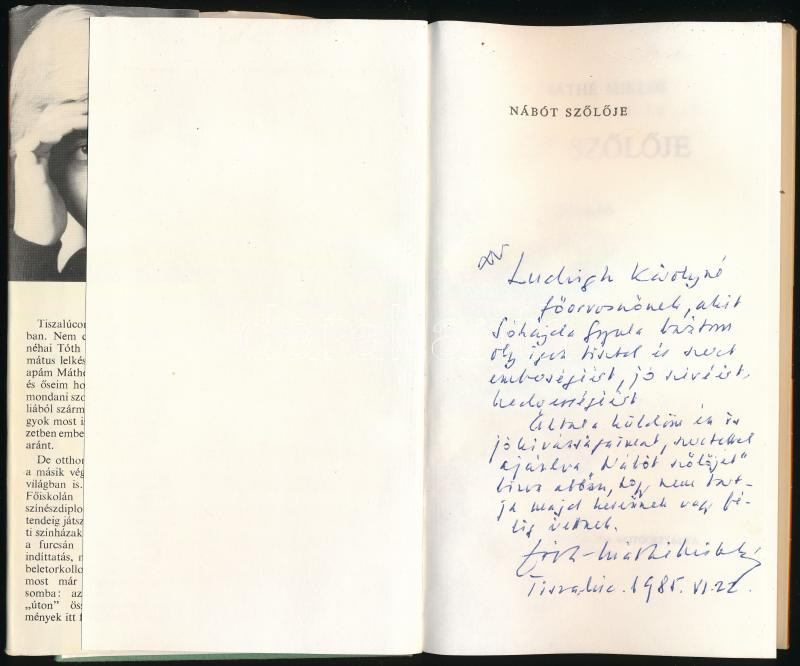 Tiszalúco
ban. Nem
néhai Tóth
mátus lelkés
apám Máthé
és őseim ho
mondani szo
liából szárm
gyok most i
zetben embe
aránt.
De otthor
a másik vég
világban is.
Főiskolán
színészdiplo
tendeig játsz
ti színházak
a furcsán
indíttatás, 
beletorkollo
most már
somba: az
„úton” öss
mények itt f
NÁBÓT SZŐLŐJE
SZŐLŐJE
Ludvigh Károlyné
főorvosnőnek, akit
Sóhajda Gyula bátyám
oly igen tisztel és szeret
emberségéért, jó szívéért,
kedvességéért
Általa küldöm én is
jókívánságaimat, szeretettel
ajánlva „Nábót szőlőjét”
bízva abban, hogy nem tart-
ja majd keserűnek vagy fé-
lig érettnek.
Tiszalúc. 1985. VI. 22.